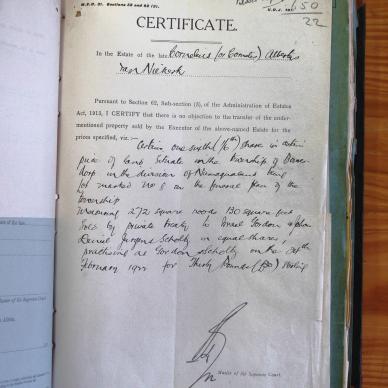 M.S.C. 21. Sections 58 and 62 (5).
U.D.J.
650
22
CERTIFICATE.
In the Estate of the late Cornelius (or Cornelis) Albertus
van Niekerk
Pursuant to Section 62, Sub-section (5), of the Administration of Estates
Act, 1913, I CERTIFY that there is no objection to the transfer of the under-
mentioned property sold by the Executor of the above-named Estate for the
prices specified, viz.:—
Certain one sixth (1/6th) share in certain
piece of land situate in the township of
dorp in the division of Namaqualand being
lot marked No 6 on the general plan of the
township
measuring 272 square roods 130 square feet
sold by private treaty to Israel Gordon & John
Daniel Jurgens Scholtz in equal shares,
practising as Gordon & Scholtz on the
February for Thirty Pounds (£30) sterling
Master of the Supreme Court.